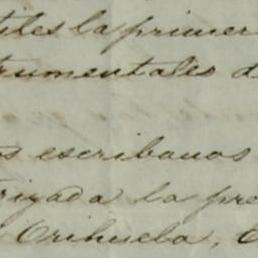 tiles la primer
trumentales d
s escribanos
rizada la pre
Orihuela,